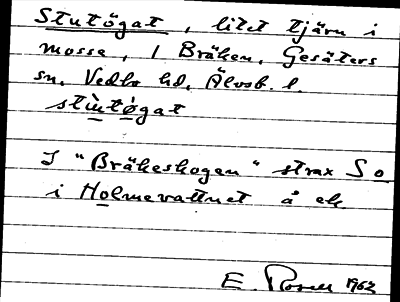 Stutögat, litet tjärn i
mosse, 1 Bräken, Gesäters
sn, Vedbo hd, Älvsb. l.
stùtògat
I "Bräkeskogen" strax So
i Holmevattnet å ek
E. Rosell 1962